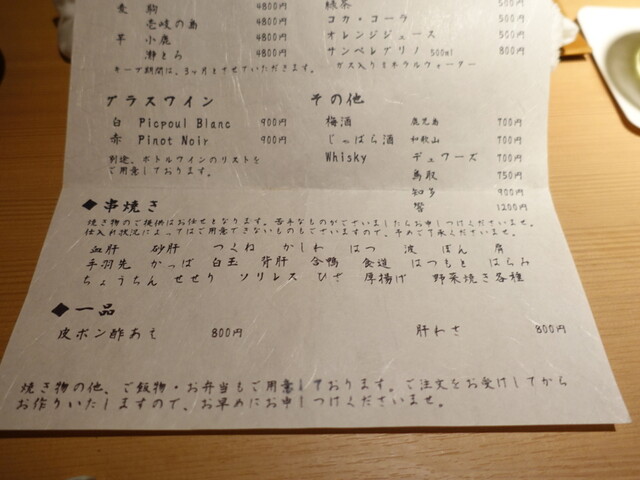 麦 駒 4800円 緑茶 500円
壱岐の島 4800円 コカ・コーラ 500円
芋 小鹿 4800円 オレンジジュース 500円
4800円 サンペレグリノ 500ml 800円
キープ期間は、3ヶ月とさせていただきます。 ガス入りミネラルウォーター
グラスワイン その他
白 Picpoul Blanc 900円 梅酒 鹿児島 700円
赤 Pinot Noir 900円 じゃばら酒 和歌山 700円
別途、ボトルワインのリストを Whisky デュワーズ 700円
ご用意しております。 鳥取 750円
知多 900円
◆串焼き 響 1250円
焼き物のご提供はお任せとなります。苦手なものがございましたらお申しつけくださいませ。
仕入れ状況によってはご用意できないものもございますので、予めご了承くださいませ。
血肝 砂肝 つくね かしわ はつ 波 ぼん 肩
手羽先 かっぱ 白玉 背肝 合鴨 食道 はつもと はらみ
ちょうちん せせり ソリレス ひざ 厚揚げ 野菜焼き各種
◆一品
皮ポン酢あえ 800円 肝わさ 800円
焼き物の他、ご飯物・お弁当もご用意しております。ご注文をお受けしてから
お作りいたしますので、お早めにお申しつけくださいませ。